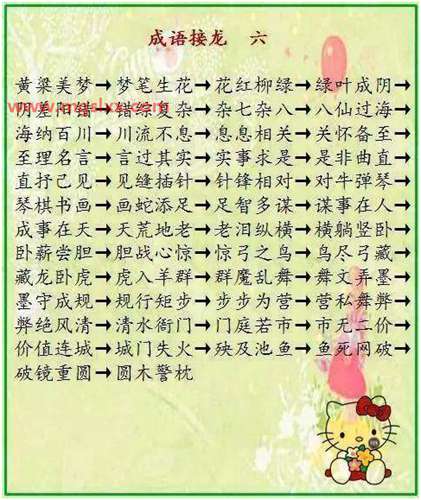 成语接龙 六
黄粱美梦→梦笔生花→花红柳绿→绿叶成阴→
阴差阳错→错综复杂→杂七杂八→八仙过海→
海纳百川→川流不息→息息相关→关怀备至→
至理名言→言过其实→实事求是→是非曲直→
直抒己见→见缝插针→针锋相对→对牛弹琴→
琴棋书画→画蛇添足→足智多谋→谋事在人→
成事在天→天荒地老→老泪纵横→横躺竖卧→
卧薪尝胆→胆战心惊→惊弓之鸟→鸟尽弓藏→
藏龙卧虎→虎入羊群→群魔乱舞→舞文弄墨→
墨守成规→规行矩步→步步为营→营私舞弊→
弊绝风清→清水衙门→门庭若市→市无二价→
价值连城→城门失火→殃及池鱼→鱼死网破→
破镜重圆→圆木警枕